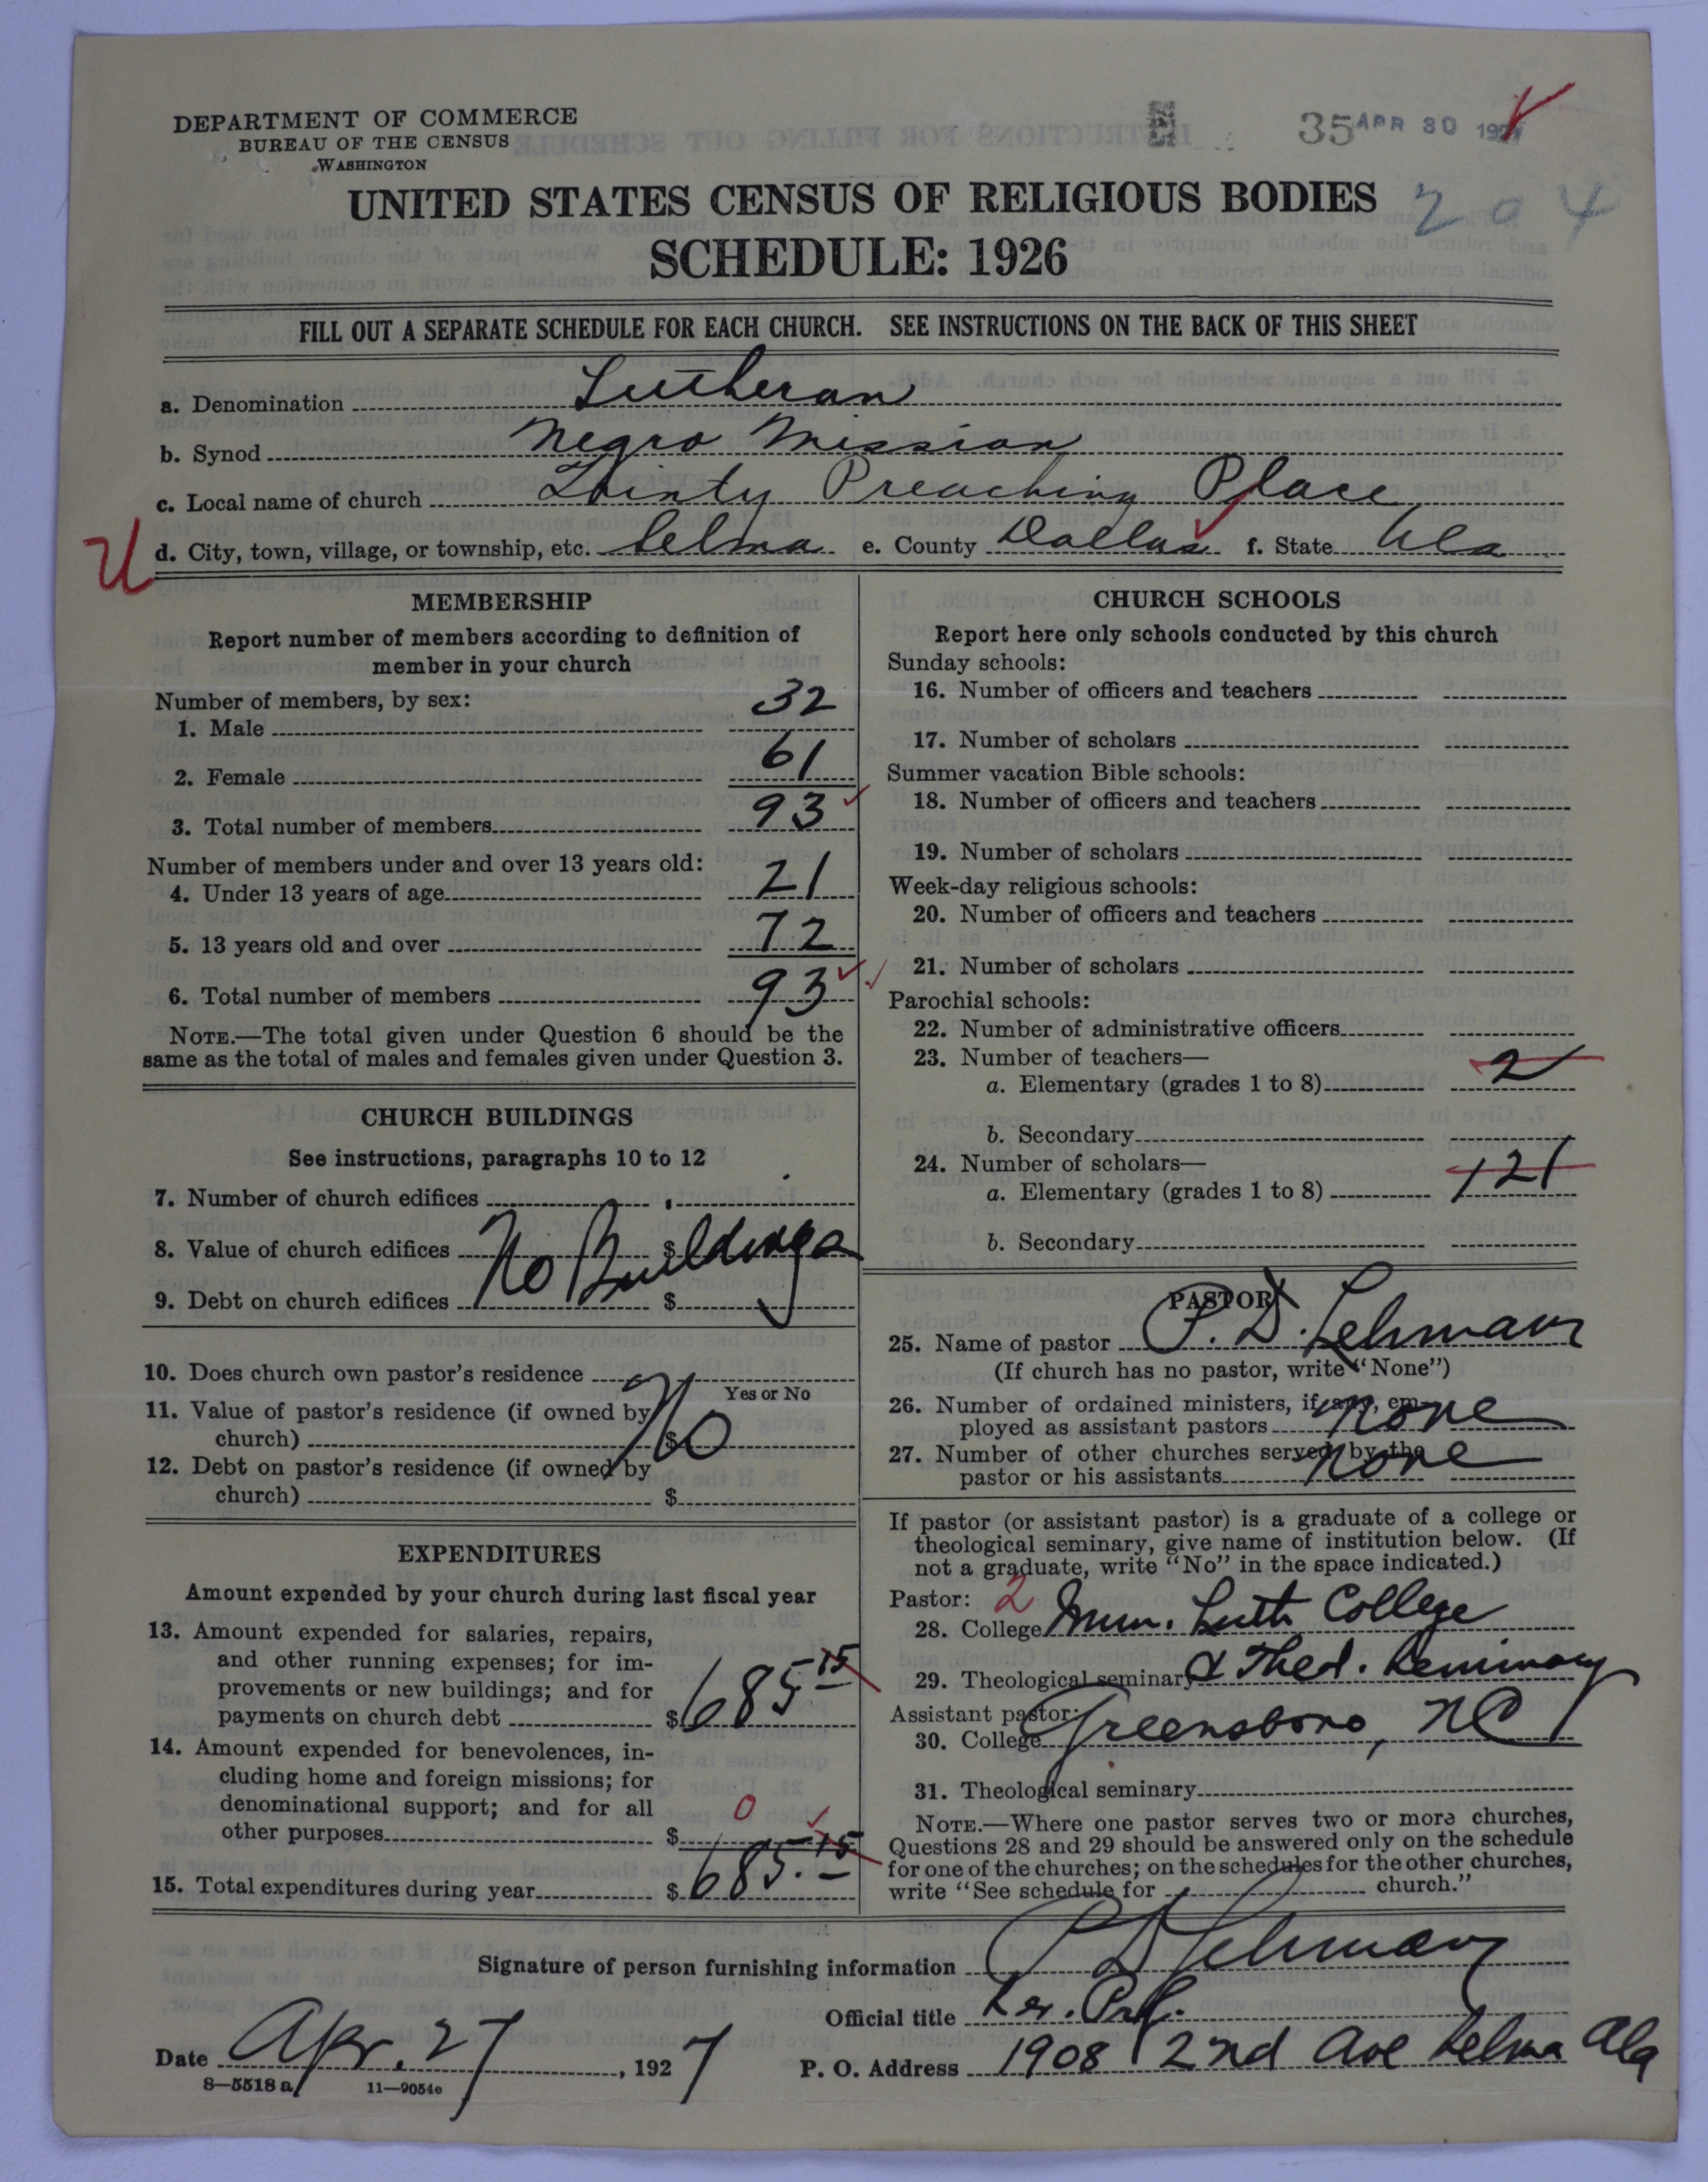 DEPARTMENT OF COMMERCE
BUREAU OF THE CENSUS
WASHINGTON
35 APR 30 1927
UNITED STATES CENSUS OF RELIGIOUS BODIES
204
SCHEDULE: 1926
FILL OUT A SEPARATE SCHEDULE FOR EACH CHURCH. SEE INSTRUCTIONS ON THE BACK OF THIS SHEET
a. Denomination Lutheran
b. Synod Negro Mission
c. Local name of church Trinty Preaching Place
U d. City, town, village, or township, etc. Selma e. County Dallas f. State Ala
MEMBERSHIP
Report number of members according to definition of
member in your church
Number of members, by sex:
1. Male 32
2. Female 61
3. Total number of members 93
Number of members under and over 13 years old:
4. Under 13 years of age 21
5. 13 years old and over 72
6. Total number of members 93
NOTE.—The total given under Question 6 should be the
same as the total of males and females given under Question 3.
CHURCH BUILDINGS
See instructions, paragraphs 10 to 12
7. Number of church edifices
8. Value of church edifices $ No Buildings
9. Debt on church edifices $
10. Does church own pastor's residence No
Yes or No
11. Value of pastor's residence (if owned by
church) $
12. Debt on pastor's residence (if owned by
church) $
EXPENDITURES
Amount expended by your church during last fiscal year
13. Amount expended for salaries, repairs,
and other running expenses; for im-
provements or new buildings; and for
payments on church debt $ 685 15
14. Amount expended for benevolences, in-
cluding home and foreign missions; for
denominational support; and for all
other purposes $ 0
15. Total expenditures during year $ 685.15
CHURCH SCHOOLS
Report here only schools conducted by this church
Sunday schools:
16. Number of officers and teachers
17. Number of scholars
Summer vacation Bible schools:
18. Number of officers and teachers
19. Number of scholars
Week-day religious schools:
20. Number of officers and teachers
21. Number of scholars
Parochial schools:
22. Number of administrative officers
23. Number of teachers—
a. Elementary (grades 1 to 8) 2
b. Secondary
24. Number of scholars—
a. Elementary (grades 1 to 8) 121
b. Secondary
PASTOR
25. Name of pastor P. D. Lehman
(If church has no pastor, write "None")
26. Number of ordained ministers, if any, em-
ployed as assistant pastors none
27. Number of other churches served by the
pastor or his assistants none
If pastor (or assistant pastor) is a graduate of a college or
theological seminary, give name of institution below. (If
not a graduate, write "No" in the space indicated.)
Pastor: 2
28. College Imm. Luth College
29. Theological seminary & Theol. Seminary
Assistant pastor:
30. College Greensboro, NC
31. Theological seminary
NOTE.—Where one pastor serves two or more churches,
Questions 28 and 29 should be answered only on the schedule
for one of the churches; on the schedules for the other churches,
write "See schedule for church."
Signature of person furnishing information P D Lehman
Official title
Date Apr. 27, 1927 P. O. Address 1908 2nd Ave Selma Ala
8—5518 a 11—9054e